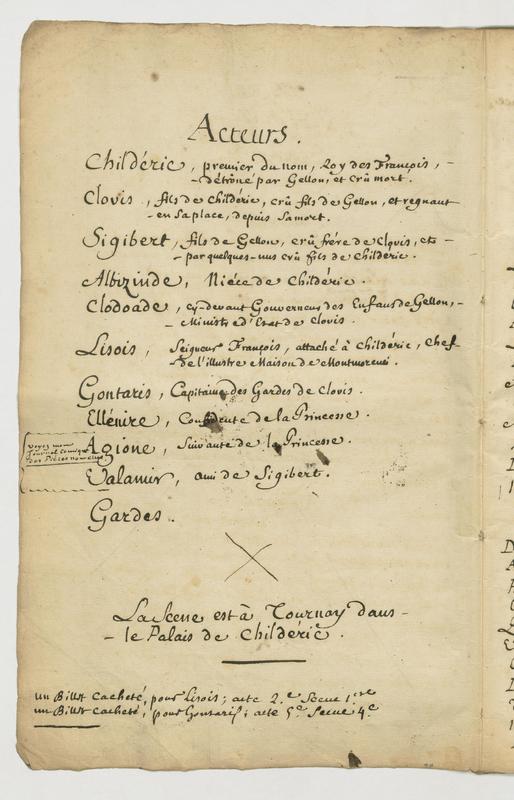 Acteurs.
Childéric, premier du nom, Roy des François, -
- détrôné par Gellon, et crû mort.
Clovis, fils de Childéric, crû fils de Gellon, et regnant
- en sa place, depuis sa mort.
Sigibert, fils de Gellon, crû frére de Clovis, et -
- par quelques-uns crû fils de Childéric.
Albizinde, Niéce de Childéric.
Clodoade, cy-devant Gouverneur des Enfans de Gellon, -
- Ministre d'Etat de Clovis.
Lisois, Seigneur François, attaché à Childéric, Chef
- de l'illustre Maison de Montmorenci.
Gontaris, Capitaine des Gardes de Clovis.
Ellénire, Confidente de la Princesse.
voyez mon
Journal
des Piéces
Agione, Suivante de la Princesse.
Valamir, ami de Sigibert.
Gardes.
La Scene est à Tournay dans -
- le Palais de Childéric.
un Billet cacheté, pour Lisois; acte 2.e Scene 1.ere
un Billet cacheté, pour Gontaris; acte 5.e Scene 4.e